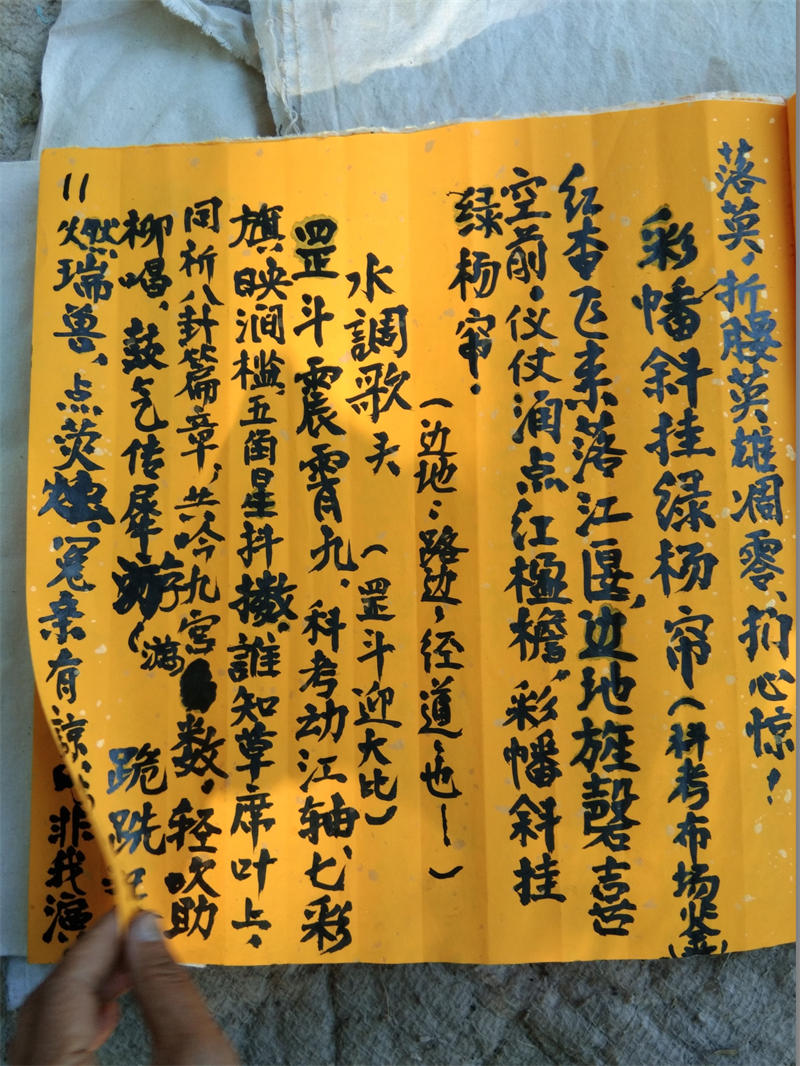 落英，折腰英雄凋零、扪心惊！
彩幡斜挂绿杨帘（科考布场鉴）
红杏飞来落江匽，边地旌磬喜
空前，仪仗涌点红楹檐，彩幡斜挂
绿杨帘。
（边地：路边，径道，也—）
水調歌天（罡斗迎大比）
罡斗震霄九、科考动江轴、七彩
旗，映涧槛五角星抖擞，誰知草席叶上，
同析八封篇章，共今九宫数，轻吹助
柳唱、鼓气传犀游（满
跪跣
燃瑞兽、点荧烛、冤亲有谅，非我渔